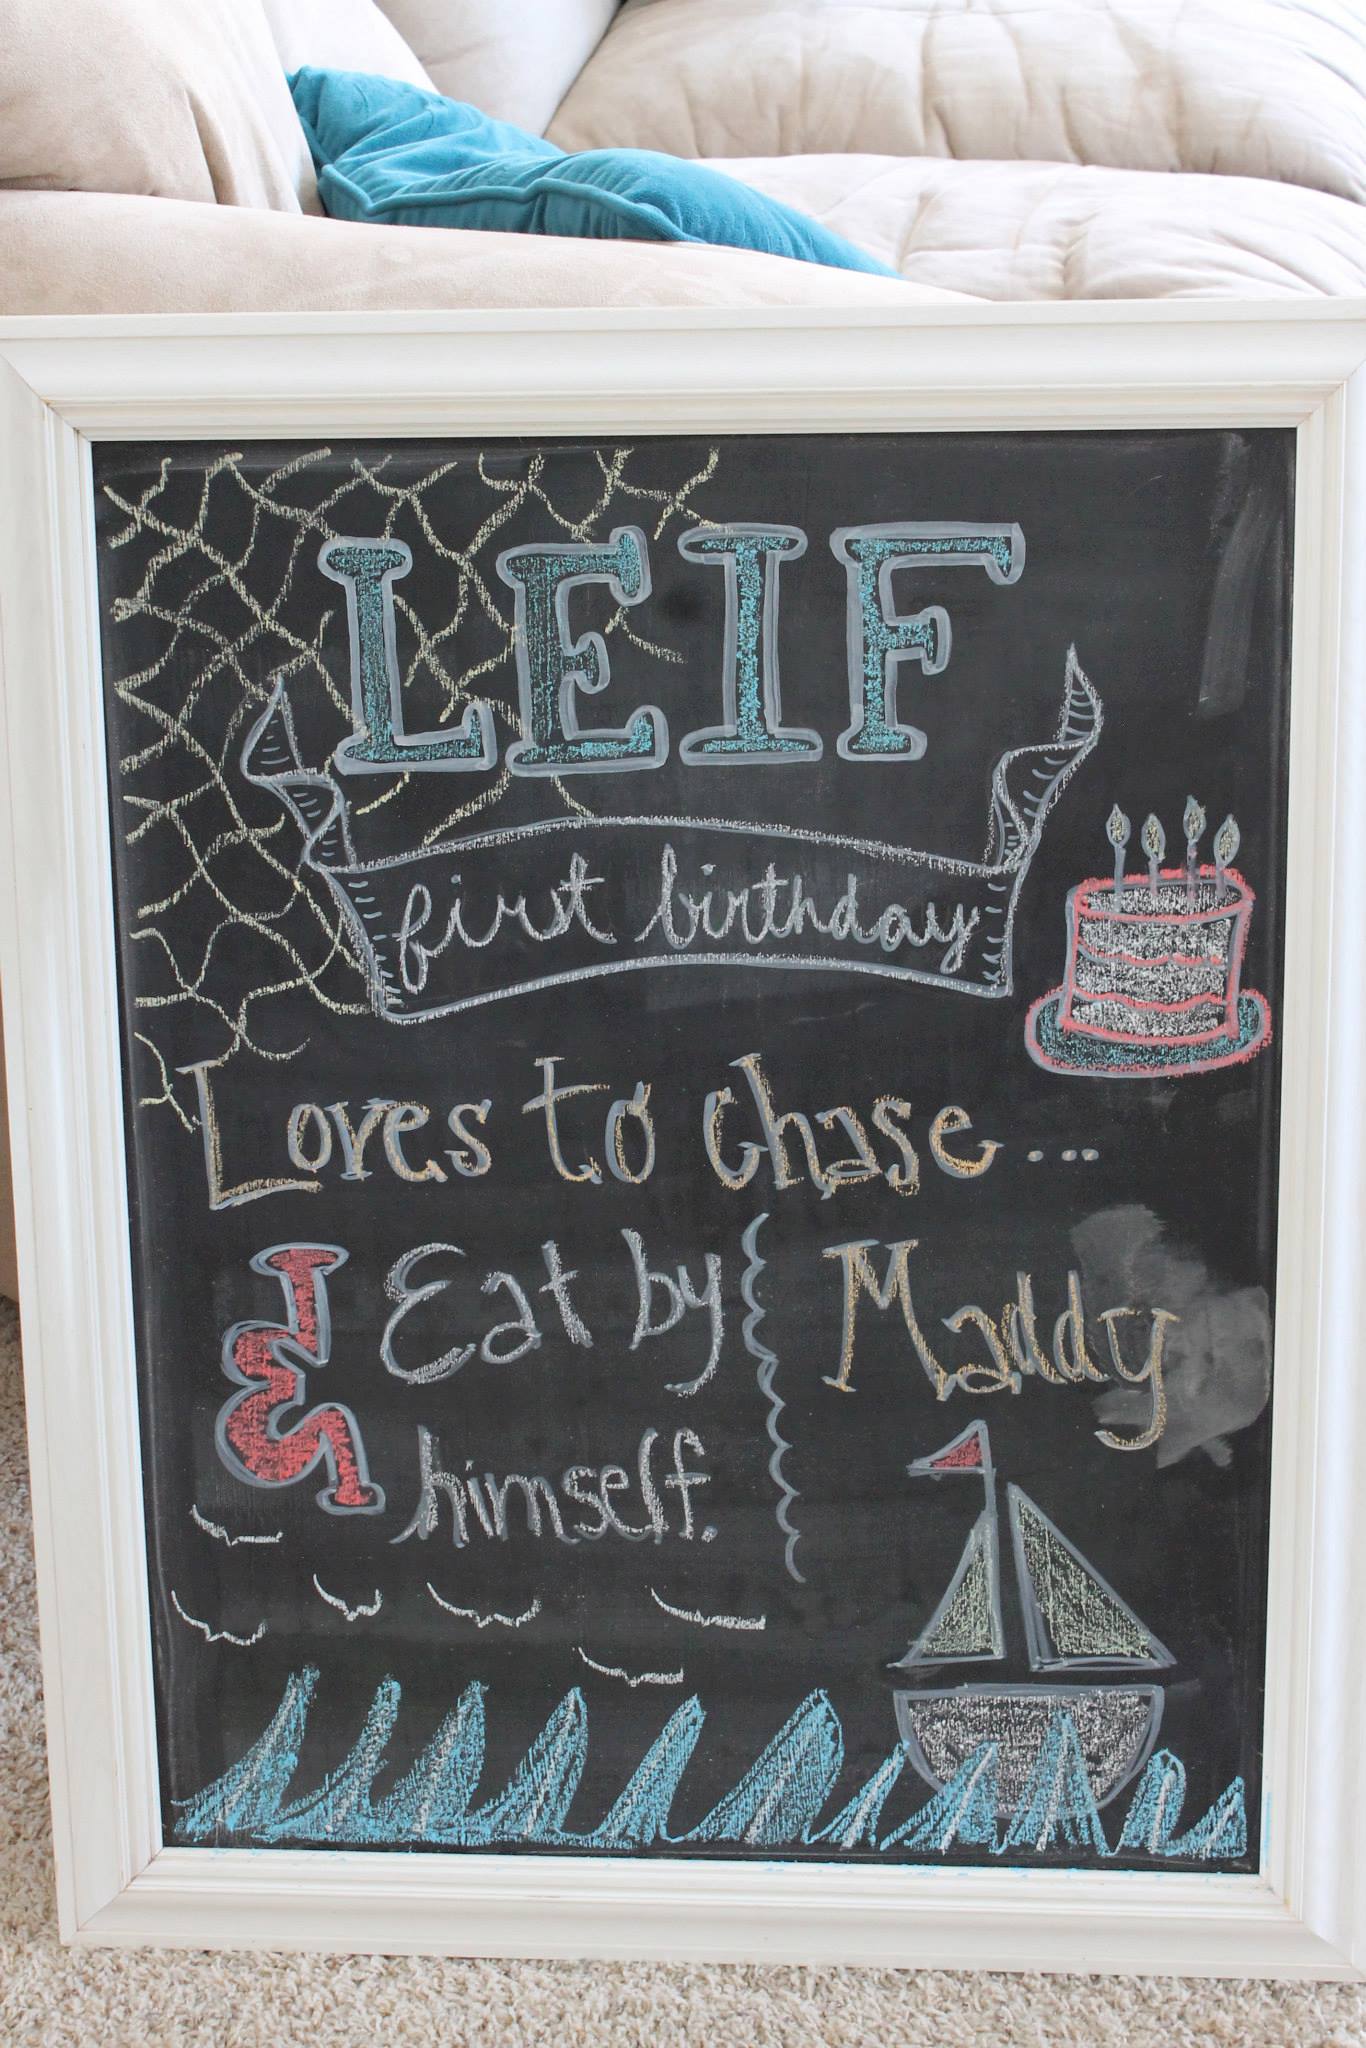 LEIF
first birthday
Loves to chase ...
Maddy
Eat by
himself.